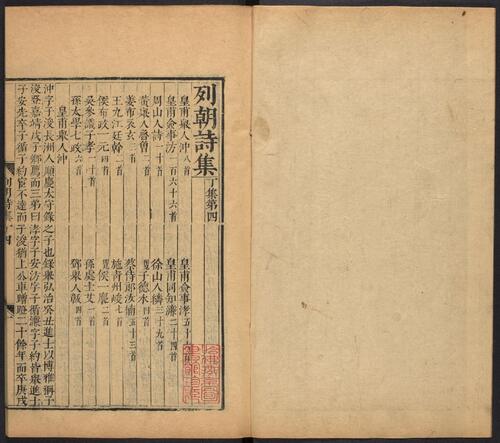 列朝詩集丁集第四
皇甫舉人沖八首
皇甫僉事涍五十
皇甫僉事汸一百六十六首
皇甫同知濂二十四首
周山人詩一十首
徐山人繗三十九首
黃舉人魯曾二首
子德水四首
姜市玄二首
蔡侍郎汝楠五十三首
王九江廷幹二首
施青州峻七首
侯布政一元四首
侯一麐二首
吳參議子孝一十首
孫處士艾一首
孫太學七政六首
鄧舉人黻四首
皇甫舉人沖
沖字子浚長洲人順慶太守錄之子也錄舉弘治癸丑進士以博雅稱于
浚登嘉靖戊子鄉薦而三弟曰涍字子安汸字子循濂字子約皆舉進士
子安先卒子循子約宦不達而子浚猶上公車蹭蹬二十餘年而卒庚戌
列朝詩集 丁四 一